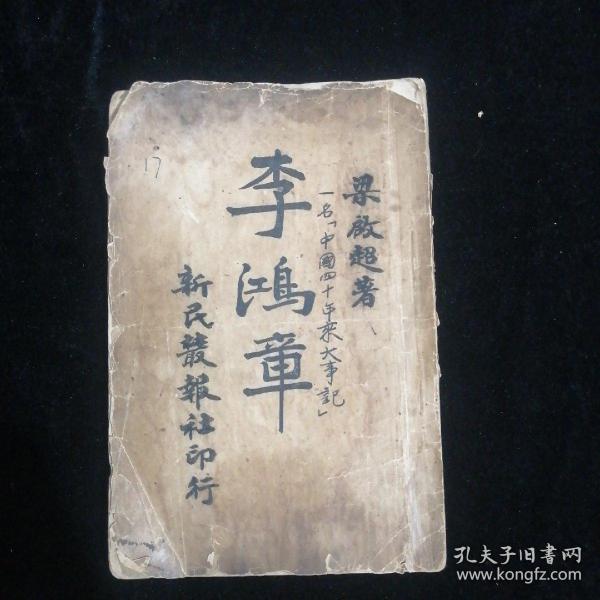 梁啟超著
一名「中國四十年來大事記」
李鴻章
新民叢報社印行
17
孔夫子旧書网
www.kongfz.com